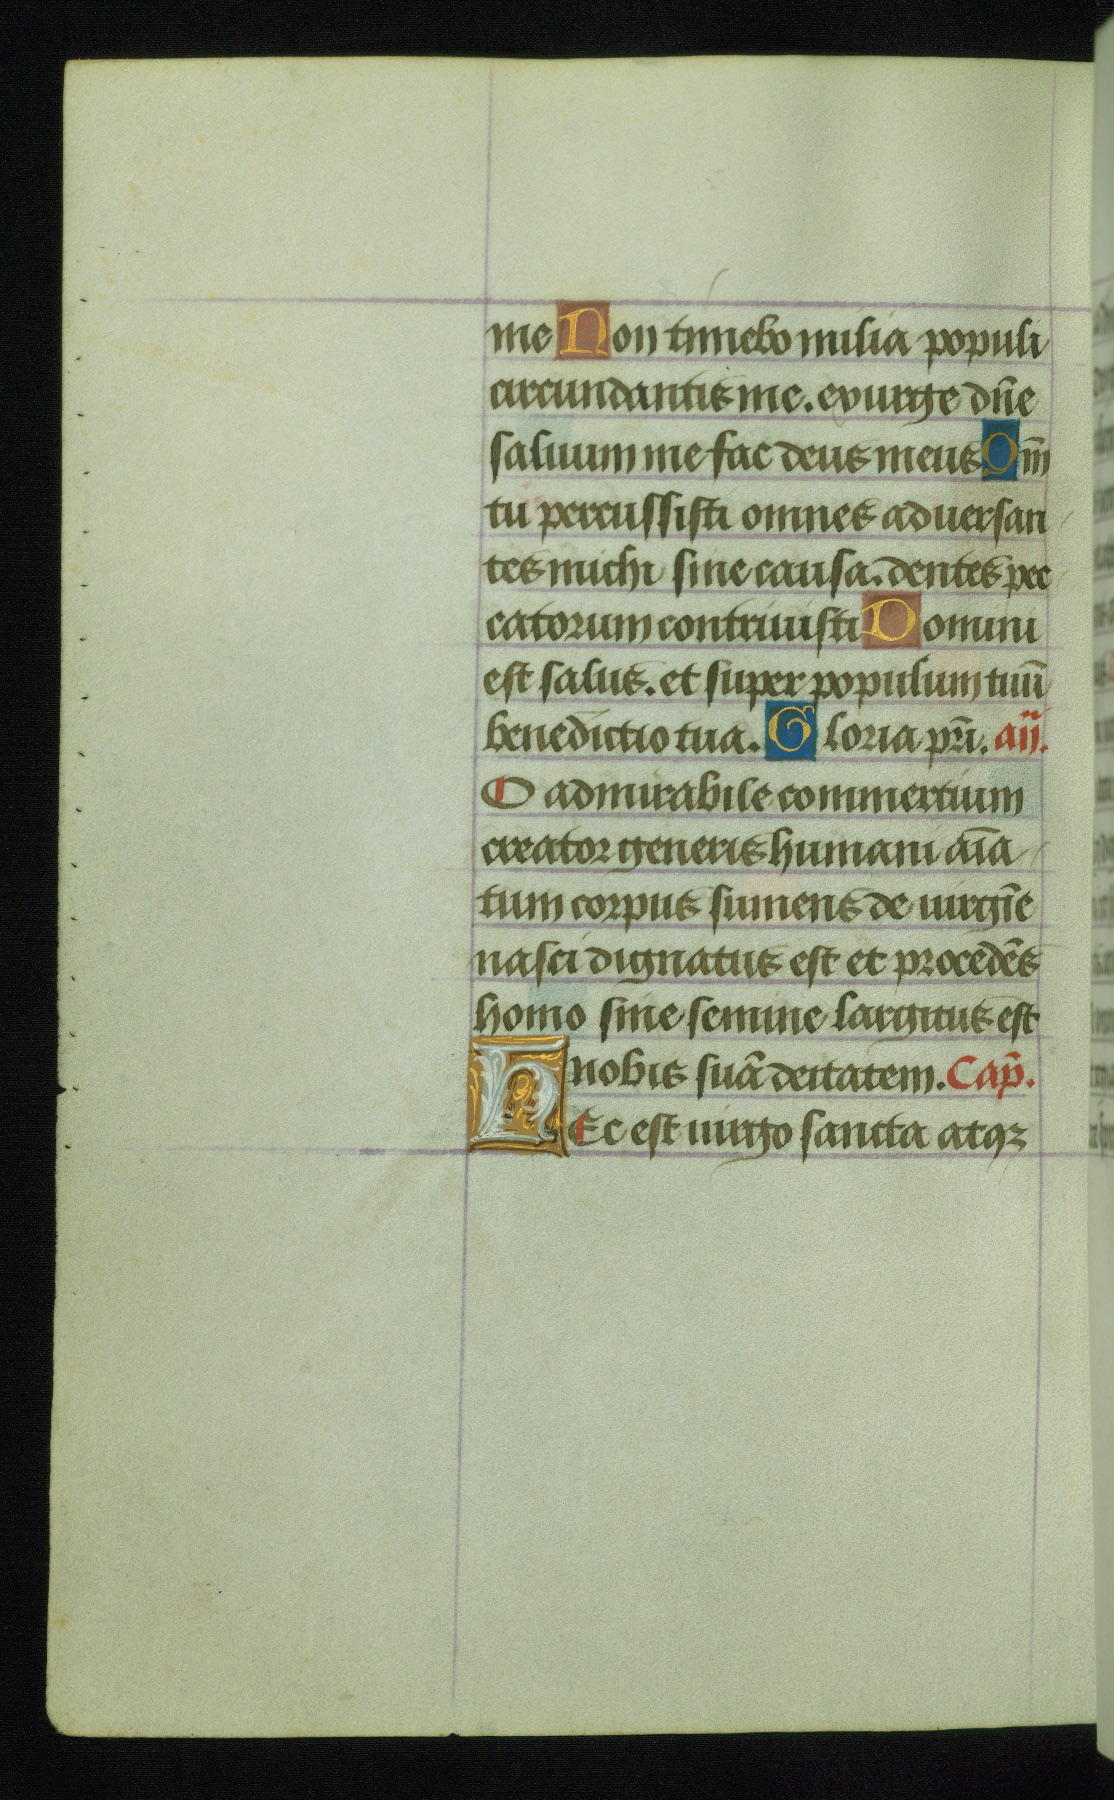 me Non timebo milia populi
circundantis me. exurge dñe
saluum me fac deus meus Qm̄
tu percussisti omnes aduersan
tes michi sine causa. dentes pec
catorum contriuisti Domini
est salus. et super populum tuū
benedictio tua. Gloria pr̄i. añ.
O admirabile commertium
creator generis humani aīa
tum corpus sumens de uirgīe
nasci dignatus est et procedēs
homo sine semine largitus est
nobis suā deitatem. Cap̄.
HEc est uirgo sancta atqꝫ